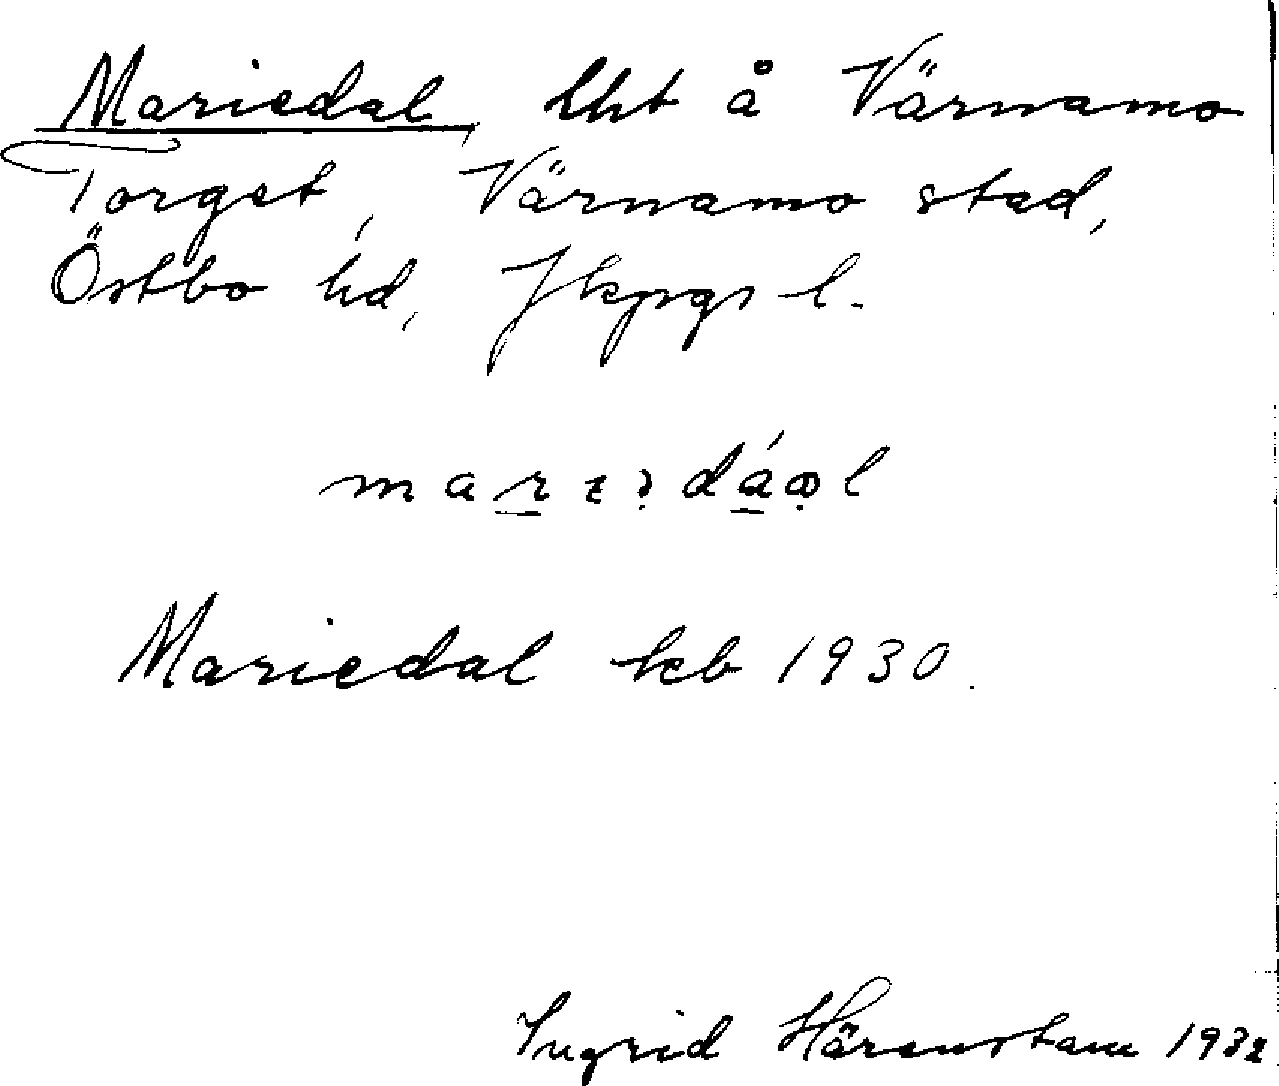 Mariedal, lht å Värnamo
Torget, Värnamo stad,
Östbo hd, Jkpgs l.
Mariedal kb 1930.
Ingrid Härenstam 1932